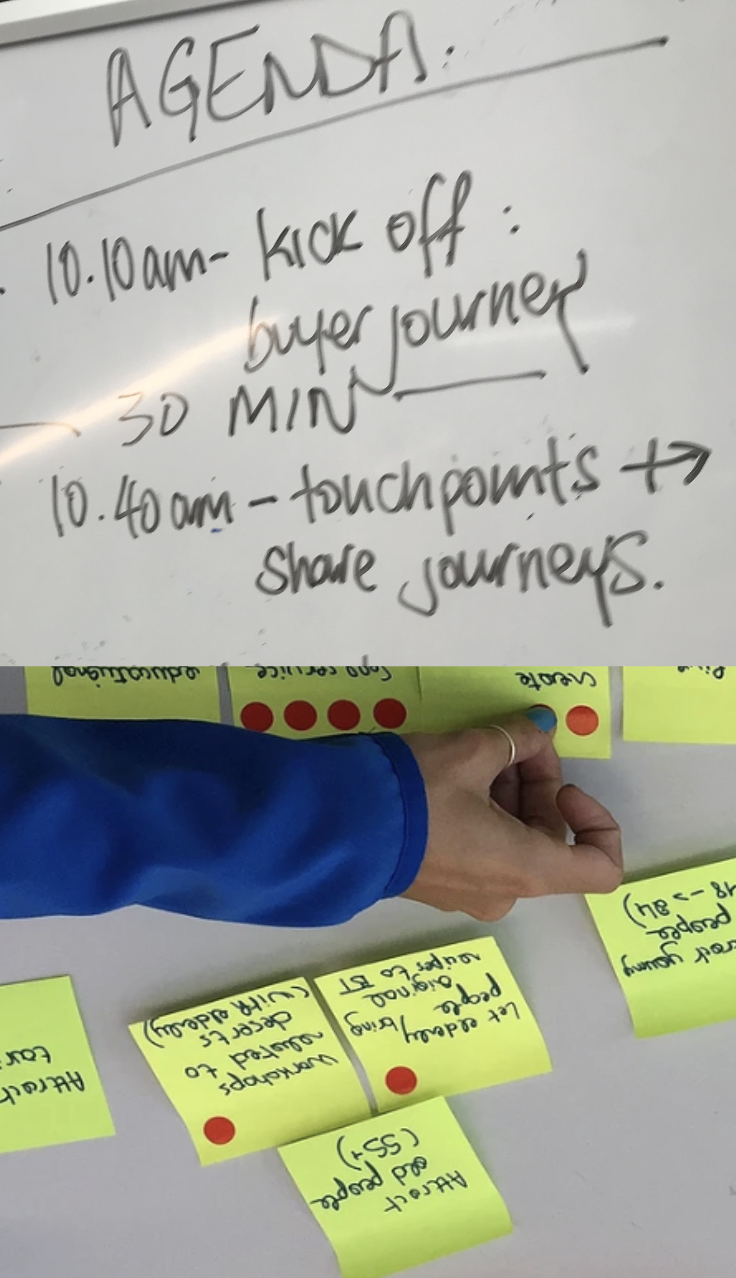 AGENDA.
10.10am - kick off :
buyer journey
30 MIN
10.40am - touchpoints +→
share journeys.
educational
create
young
people
18 -> 34)
Attract
workshops
related to
deserts
(with elderly)
Let elderly bring
people
original
recipes to BT
Attract
old people
(55+)